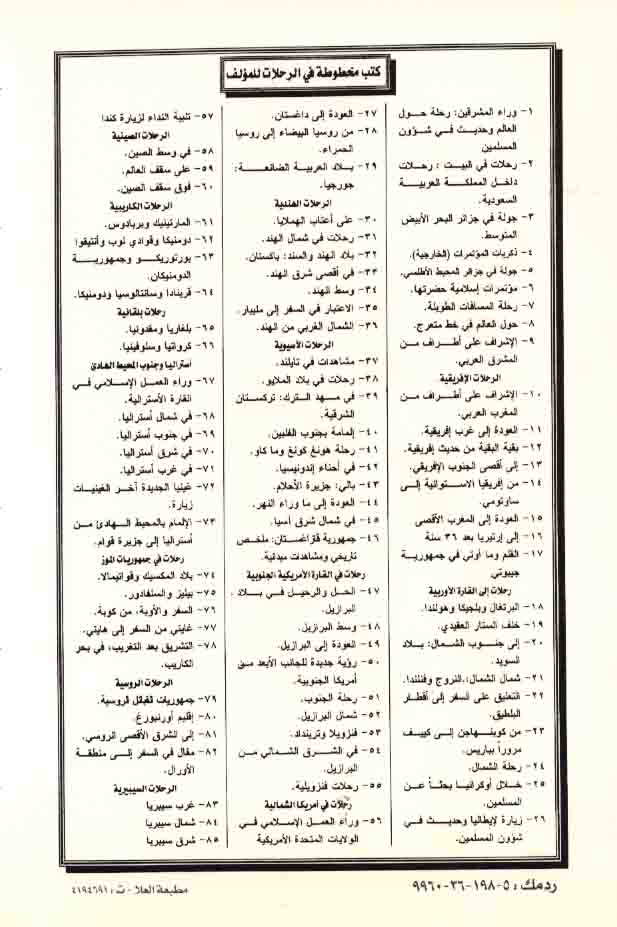 كتب مخطوطة في الرحلات للمؤلف
١- وراء المشرقين: رحلة حول
العالم وحديث في شؤون
المسلمين
٢- رحلات في البيت : رحلات
داخل المملكة العربية
السعودية.
٣- جولة في جزائر البحر الأبيض
المتوسط.
٤- ذكريات المؤتمرات (الخارجية).
٥- جولة في جزائر المحيط الأطلسي.
٦- مؤتمرات إسلامية حضرتها.
٧- رحلة المسافات الطويلة.
٨- حول العالم في خط متعرج.
٩- الإشراف على أطراف من
المشرق العربي.
الرحلات الإفريقية
١٠- الإشراف على أطراف من
المغرب العربي.
١١- العودة إلى غرب إفريقية.
١٢- بقية البقية من حديث إفريقية.
١٣- إلى أقصى الجنوب الإفريقي.
١٤- من إفريقيا الاستوائية إلى
ساوتومي.
١٥- العودة إلى المغرب الأقصى
١٦- إلى إرتيريا بعد ٣٦ سنة
١٧- القلم وما أوتي في جمهورية
جيبوتي
رحلات إلى القارة الأوربية
١٨- البرتغال وبلجيكا وهولندا.
١٩- خلف الستار العقيدي.
٢٠- إلى جنوب الشمال: بلاد
السويد.
٢١- شمال الشمال: النروج وفنلندا.
٢٢- التعليق على السفر إلى أقطار
البلطيق.
٢٣- من كوبنهاجن إلى كييف
مروراً بباريس.
٢٤- رحلة الشمال.
٢٥- خلال أوكرانيا بحثاً عن
المسلمين.
٢٦- زيارة لإيطاليا وحديث في
شؤون المسلمين.
٢٧- العودة إلى داغستان.
٢٨- من روسيا البيضاء إلى روسيا
الحمراء.
٢٩- بلاد العربية الضائعة:
جورجيا.
الرحلات الهندية
٣٠- على أعتاب الهملايا.
٣١- رحلات في شمال الهند.
٣٢- بلاد الهند والسند: باكستان.
٣٣- في أقصى شرق الهند.
٣٤- وسط الهند.
٣٥- الاعتبار في السفر إلى مليبار.
٣٦- الشمال الغربي من الهند.
الرحلات الآسيوية
٣٧- مشاهدات في تايلند.
٣٨- رحلات في بلاد الملايو.
٣٩- في مهد الترك: تركستان
الشرقية.
٤٠- إلمامة بجنوب الفلبين.
٤١- رحلة هونغ كونغ وما كاو.
٤٢- في أحناء إندونيسيا.
٤٣- بالي: جزيرة الأحلام.
٤٤- العودة إلى ما وراء النهر.
٤٥- في شمال شرق آسيا.
٤٦- جمهورية قازاغستان: ملخص
تاريخي ومشاهدات ميدنية.
رحلات في القارة الأمريكية الجنوبية
٤٧- الحل والرحيل في بلاد
البرازيل.
٤٨- وسط البرازيل.
٤٩- العودة إلى البرازيل.
٥٠- رؤية جديدة للجانب الأبعد من
أمريكا الجنوبية.
٥١- رحلة الجنوب.
٥٢- شمال البرازيل.
٥٣- فنزويلا وترينداد.
٥٤- في الشرق الشمالي من
البرازيل.
٥٥- رحلات فنزويلية.
رحلات في أمريكا الشمالية
٥٦- وراء العمل الإسلامي في
الولايات المتحدة الأمريكية
٥٧- تلبية النداء لزيارة كندا
الرحلات الصينية
٥٨- في وسط الصين.
٥٩- على سقف العالم.
٦٠- فوق سقف الصين.
الرحلات الكاريبية
٦١- المارتينيك وبربادوس.
٦٢- دومنيكا وقوادي لوب وأنتيقوا
٦٣- بورتوريكو وجمهورية
الدومنيكان.
٦٤- قرينادا وسانتالوسيا ودومنيكا.
رحلات بلقانية
٦٥- بلغاريا ومقدونيا.
٦٦- كرواتيا وسلوفينيا.
أستراليا وجنوب المحيط الهادئ
٦٧- وراء العمل الإسلامي في
القارة الأسترالية.
٦٨- في شمال أستراليا.
٦٩- في جنوب أستراليا.
٧٠- في شرق أستراليا.
٧١- في غرب أستراليا.
٧٢- غينيا الجديدة آخر الغينيات
زيارة.
٧٣- الإلمام بالمحيط الهادئ من
أستراليا إلى جزيرة قوام.
رحلات في جمهوريات الموز
٧٤- بلاد المكسيك وقواتيمالا.
٧٥- بيليز والسلفادور.
٧٦- السفر والأوبة، من كوبة.
٧٧- غايتي من السفر إلى هايتي.
٧٨- التشريق بعد التغريب، في بحر
الكاريب.
الرحلات الروسية
٧٩- جمهوريات القبائل الروسية.
٨٠- إقليم أورنبورغ.
٨١- إلى الشرق الأقصى الروسي.
٨٢- مقال في السفر إلى منطقة
الأورال.
الرحلات السيبيرية
٨٣- غرب سيبريا
٨٤- شمال سيبريا
٨٥- شرق سيبريا
ردمك: ٥-١٩٨-٣٦-٩٩٦٠
مطبعة العلا - ت: ٤١٩٤٦٩١